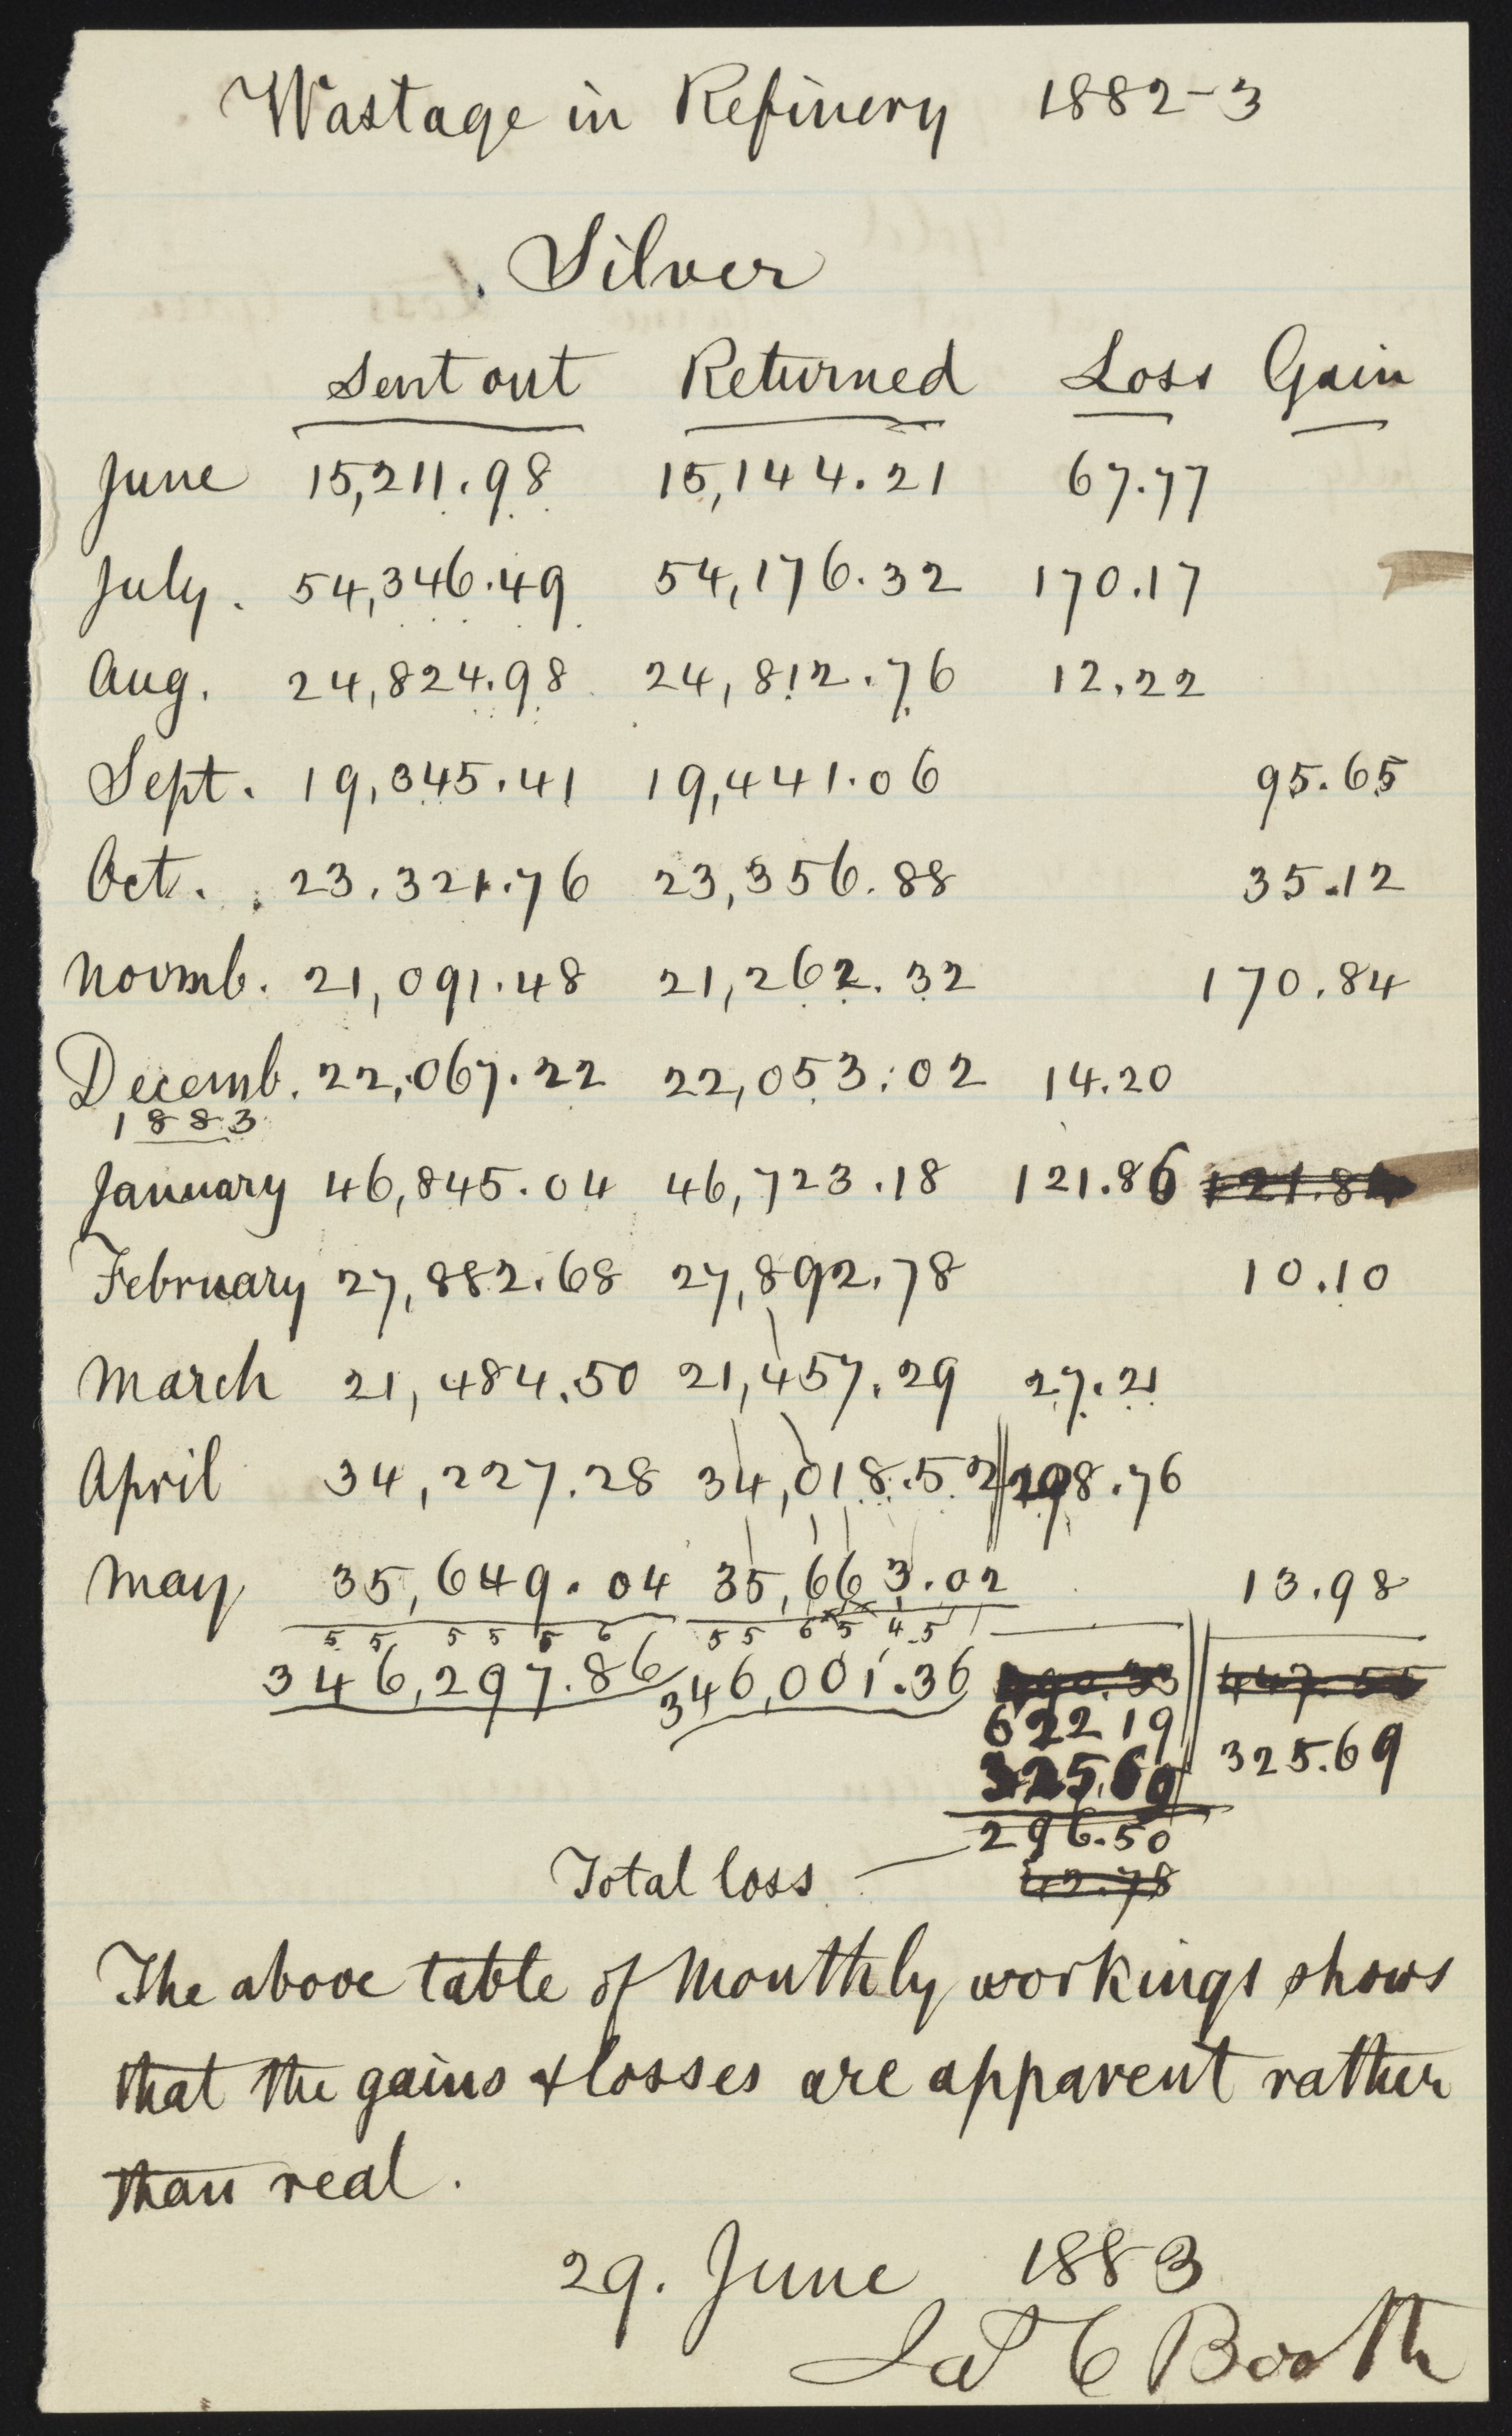 Wastage in Refinery 1882-3
Silver
Sent out Returned Loss Gain
June 15,211.98 15,144.21 67.77
July. 54,346.49 54,176.32 170.17
Aug. 24,824.98 24,812.76 12.22
Sept. 19,345.41 19,441.06 95.65
Oct. 23.321.76 23,356.88 35.12
Novmb. 21,091.48 21,262.32 170.84
Decemb. 22,067.22 22,053.02 14.20
1883
January 46,845.04 46,723.18 121.86 121.84
February 27,882.68 27,892.78 10.10
March 21,484.50 21,457.29 27.21
April 34,227.28 34,018.52 208.76
May 35,649.04 35,663.02 13.98
5 5 5 5 5 6 5 5 6 5 4 5
346,297.86 346,001.36
622 19
325.69 325.69
296.50
Total loss — 42.78
The above table of Monthly workings shows
that the gains & losses are apparent rather
than real.
29. June 1883
Jas C Booth